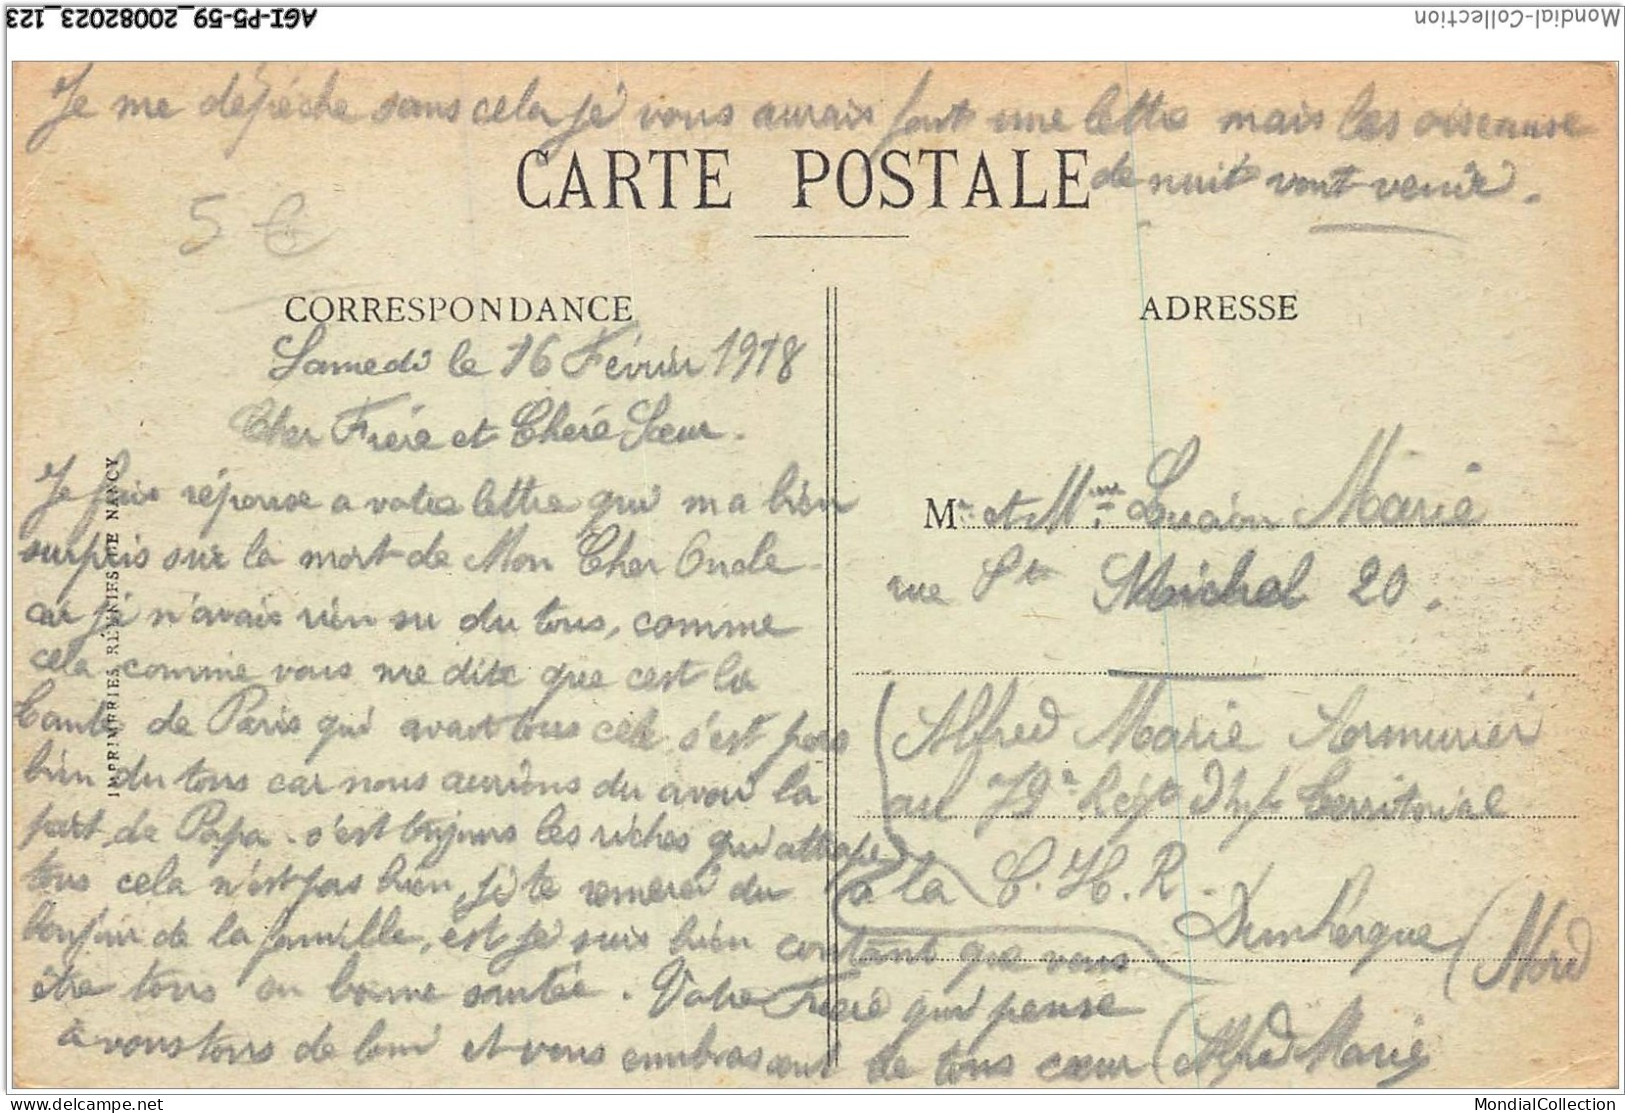 AGI-P5-59_20082023_123
Mondial-Collection
Je me dépéche sans cela je vous aurais fait une lettre mais les oiseause
de nuit vont venir.
CARTE POSTALE
5 €
CORRESPONDANCE
ADRESSE
Samedi le 16 Février 1918
Cher Frére et Chére Sœur.
Je fais réponse a votre lettre qui m a bien
surpris sur la mort de Mon Cher Oncle
car je n'avais rien su du tous, comme
cela comme vous me dite que cest la
tante de Paris qui avait tous cela s'est pas
bien du tous car nous aurions du avoir la
part de Papa. s'est toujours les riches qui attrape
tous cela n'est pas bien, je te remerci du
bonjour de la famille, est je suis bien contant que vous
être tous en bonne santée. Votre Frére qui pense
à vous tous de loin et vous embrassant de tous cœur (Alfred Marie
IMPRIMERIES RÉUNIES DE NANCY
Mr et Mme Lucien Marie
rue St Michel 20.
Alfred Marie Armurier
au 72e Régt d'Inf Territorial
a la C. H. R.
Dunkerque (Nord
delcampe.net
MondialCollection